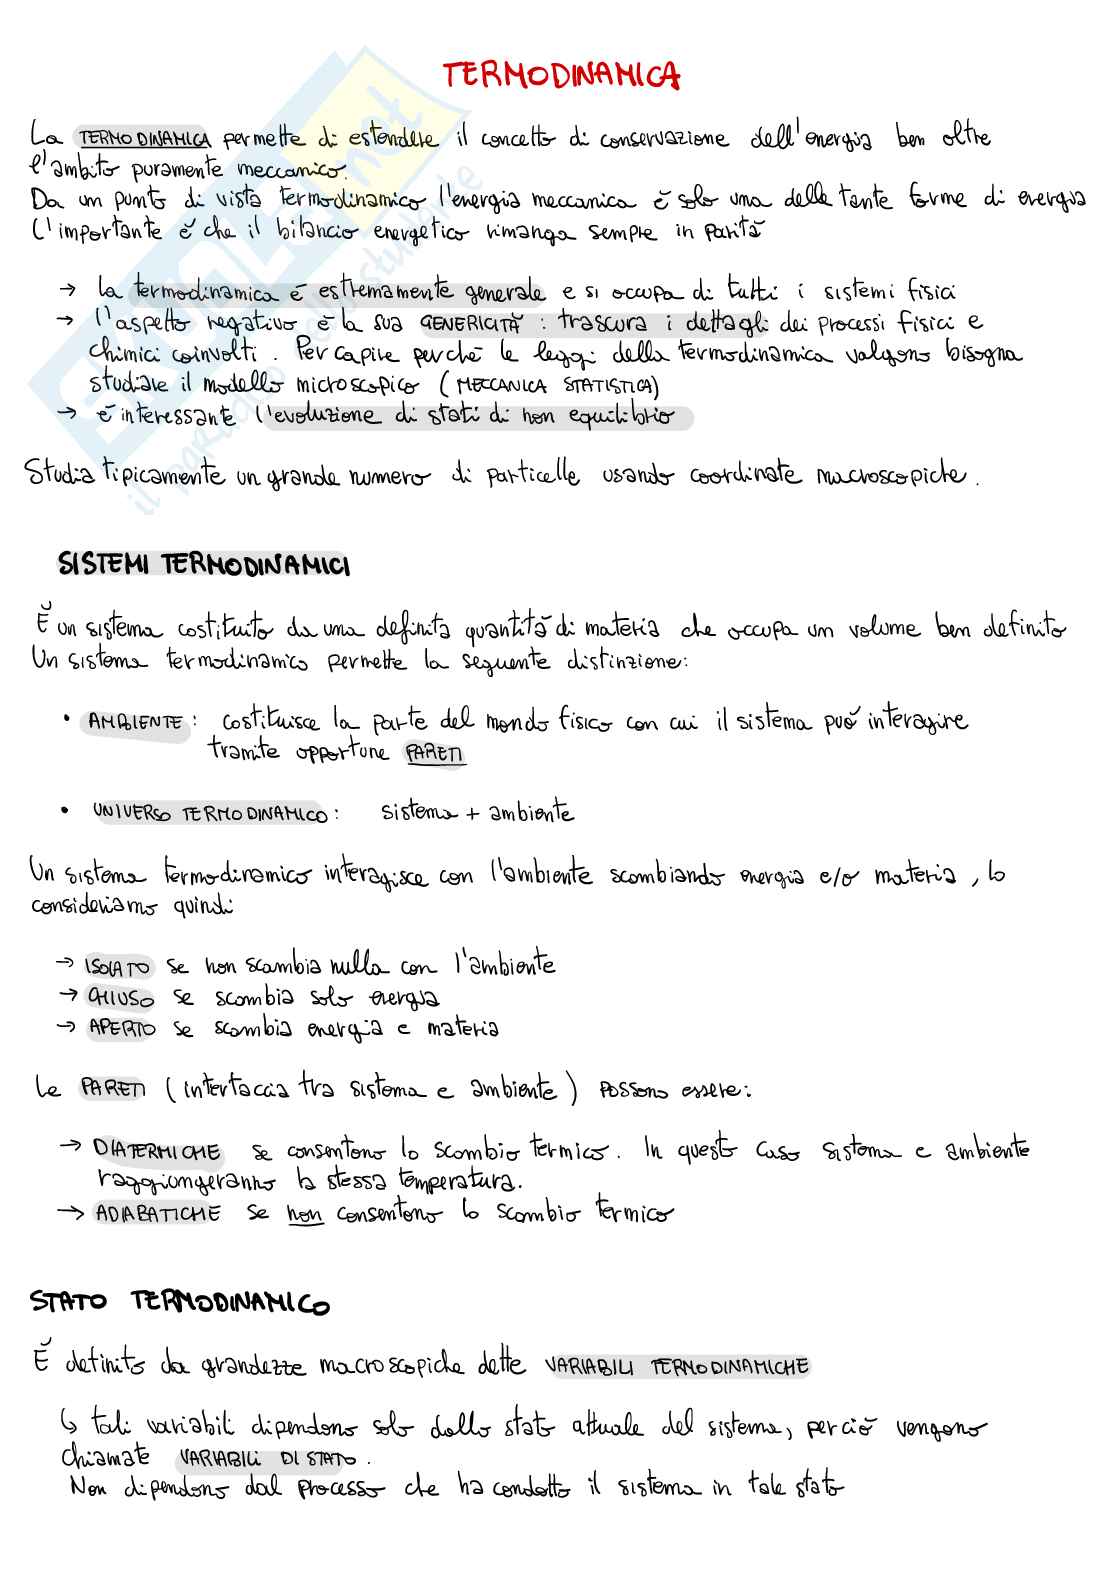 TERMODINAMICA
La TERMODINAMICA permette di estendere il concetto di conservazione dell'energia ben oltre
l'ambito puramente meccanico.
Da un punto di vista termodinamico l'energia meccanica è solo una delle tante forme di energia
L'importante è che il bilancio energetico rimanga sempre in parità
→ la termodinamica è estremamente generale e si occupa di tutti i sistemi fisici
→ l'aspetto negativo è la sua GENERICITÀ : trascura i dettagli dei processi fisici e
chimici coinvolti. Per capire perché le leggi della termodinamica valgono bisogna
studiare il modello microscopico (MECCANICA STATISTICA)
→ è interessante l'evoluzione di stati di non equilibrio
Studia tipicamente un grande numero di particelle usando coordinate macroscopiche.
SISTEMI TERMODINAMICI
È un sistema costituito da una definita quantità di materia che occupa un volume ben definito
Un sistema termodinamico permette la seguente distinzione:
• AMBIENTE: costituisce la parte del mondo fisico con cui il sistema può interagire
tramite opportune PARETI
• UNIVERSO TERMODINAMICO: sistema + ambiente
Un sistema termodinamico interagisce con l'ambiente scambiando energia e/o materia, lo
consideriamo quindi
→ ISOLATO se non scambia nulla con l'ambiente
→ CHIUSO se scambia solo energia
→ APERTO se scambia energia e materia
Le PARETI (interfaccia tra sistema e ambiente) possono essere:
→ DIATERMICHE se consentono lo scambio termico. In questo caso sistema e ambiente
raggiungeranno la stessa temperatura.
→ ADIABATICHE se non consentono lo scambio termico
STATO TERMODINAMICO
È definito da grandezze macroscopiche dette VARIABILI TERMODINAMICHE
↳ tali variabili dipendono solo dallo stato attuale del sistema, perciò vengono
chiamate VARIABILI DI STATO.
Non dipendono dal processo che ha condotto il sistema in tale stato